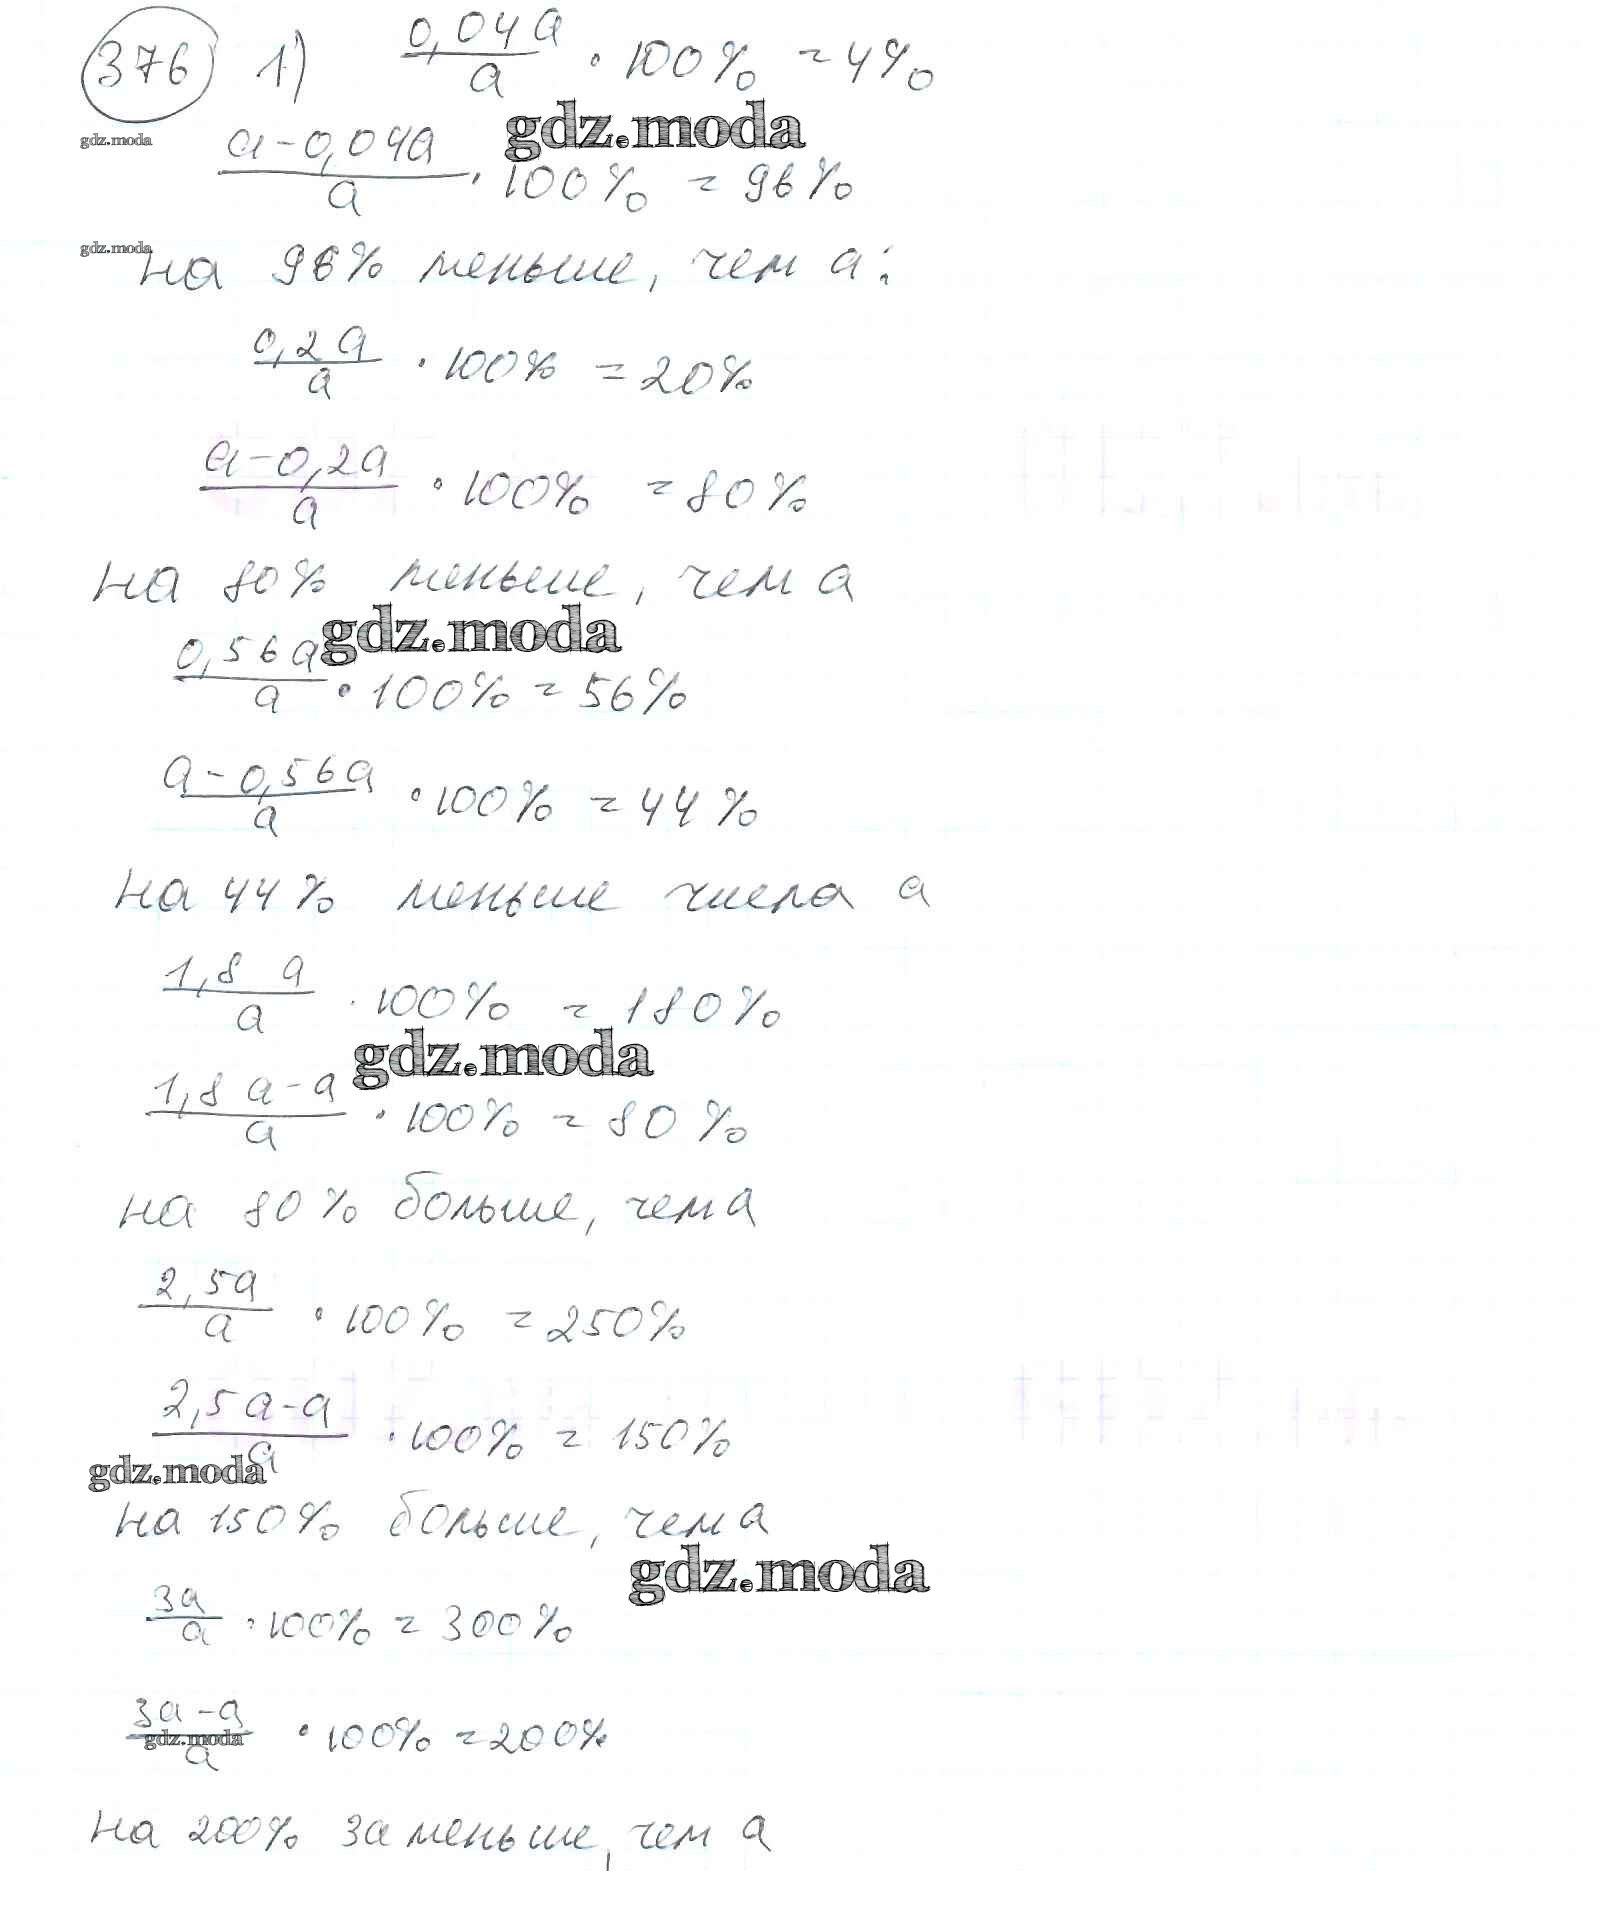 376 1) 0,04a/a · 100% = 4%
gdz.moda gdz.moda
a-0,04a/a · 100% = 96%
gdz.moda
на 96% меньше, чем a:
0,2a/a · 100% = 20%
a-0,2a/a · 100% = 80%
на 80% меньше, чем a
gdz.moda
0,56a/a · 100% = 56%
a-0,56a/a · 100% = 44%
на 44% меньше числа a
1,8 a/a · 100% = 180%
gdz.moda
1,8 a-a/a · 100% = 80%
на 80% больше, чем a
2,5a/a · 100% = 250%
2,5a-a/a · 100% = 150%
gdz.moda
на 150% больше, чем a
gdz.moda
3a/a · 100% = 300%
3a-a/a · 100% = 200%
gdz.moda
на 200% 3a меньше, чем a